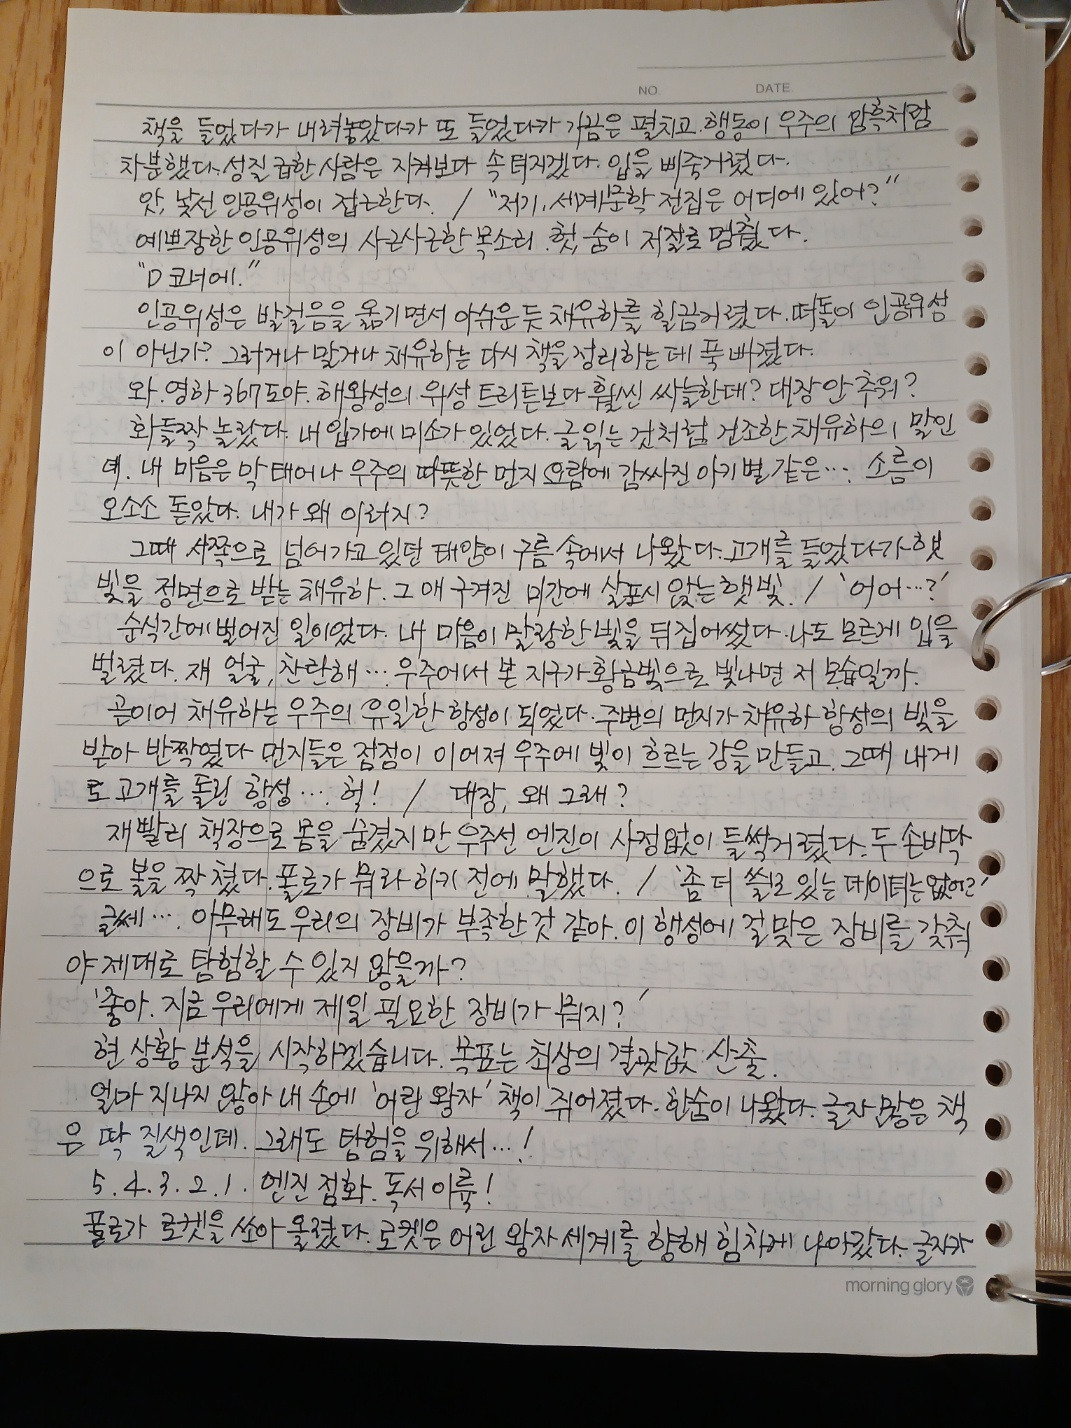 NO DATE.
책을 들었다가 내려놓았다가 또 들었다가 가끔은 펼치고. 행동이 우주의 암흑처럼
차분했다. 성질 급한 사람은 지켜보다 속 터지겠다. 입을 삐죽거렸다.
앗, 낯선 인공위성이 접근한다. / “저기, 세계문학 전집은 어디에 있어?”
예쁘장한 인공위성의 사근사근한 목소리. 헛, 숨이 저절로 멈췄다.
“D 코너에.”
인공위성은 발걸음을 옮기면서 아쉬운 듯 채유하를 힐끔거렸다. 떠돌이 인공위성
이 아닌가? 그러거나 말거나 채유하는 다시 책을 정리하는 데 푹 빠졌다.
와. 영하 367도야. 해왕성의 위성 트리튼보다 훨씬 싸늘한데? 대장 안 추워?
화들짝 놀랐다. 내 입가에 미소가 있었다. 글 읽는 것처럼 건조한 채유하의 말인
데. 내 마음은 막 태어나 우주의 따뜻한 먼지 요람에 감싸진 아기별 같은… 소름이
오소소 돋았다. 내가 왜 이러지?
그때 서쪽으로 넘어가고 있던 태양이 구름 속에서 나왔다. 고개를 들었다가 햇
빛을 정면으로 받는 채유하. 그 애 구겨진 미간에 살포시 앉는 햇빛. / ‘어어…?’
순식간에 벌어진 일이었다. 내 마음이 말랑한 빛을 뒤집어썼다. 나도 모르게 입을
벌렸다. 쟤 얼굴, 찬란해… 우주에서 본 지구가 황금빛으로 빛나면 저 모습일까.
곧이어 채유하는 우주의 유일한 항성이 되었다. 주변의 먼지가 채유하 항성의 빛을
받아 반짝였다 먼지들은 점점이 이어져 우주에 빛이 흐르는 강을 만들고. 그때 내게
로 고개를 돌린 항성… 헉! / 대장, 왜 그래?
재빨리 책장으로 몸을 숨겼지만 우주선 엔진이 사정없이 들썩거렸다. 두 손바닥
으로 볼을 짝 쳤다. 폴로가 뭐라 하기 전에 말했다. / ‘좀 더 쓸모 있는 데이터는 없어?’
글쎄…. 아무래도 우리의 장비가 부족한 것 같아. 이 행성에 걸맞은 장비를 갖춰
야 제대로 탐험할 수 있지 않을까?
‘좋아. 지금 우리에게 제일 필요한 장비가 뭐지?’
현 상황 분석을 시작하겠습니다. 목표는 최상의 결괏값 산출.
얼마 지나지 않아 내 손에 ‘어린 왕자’ 책이 쥐어졌다. 한숨이 나왔다. 글자 많은 책
은 딱 질색인데. 그래도 탐험을 위해서…!
5. 4. 3. 2. 1. 엔진 점화. 독서 이륙!
폴로가 로켓을 쏘아 올렸다. 로켓은 어린 왕자 세계를 향해 힘차게 나아갔다. 글자가
morning glory